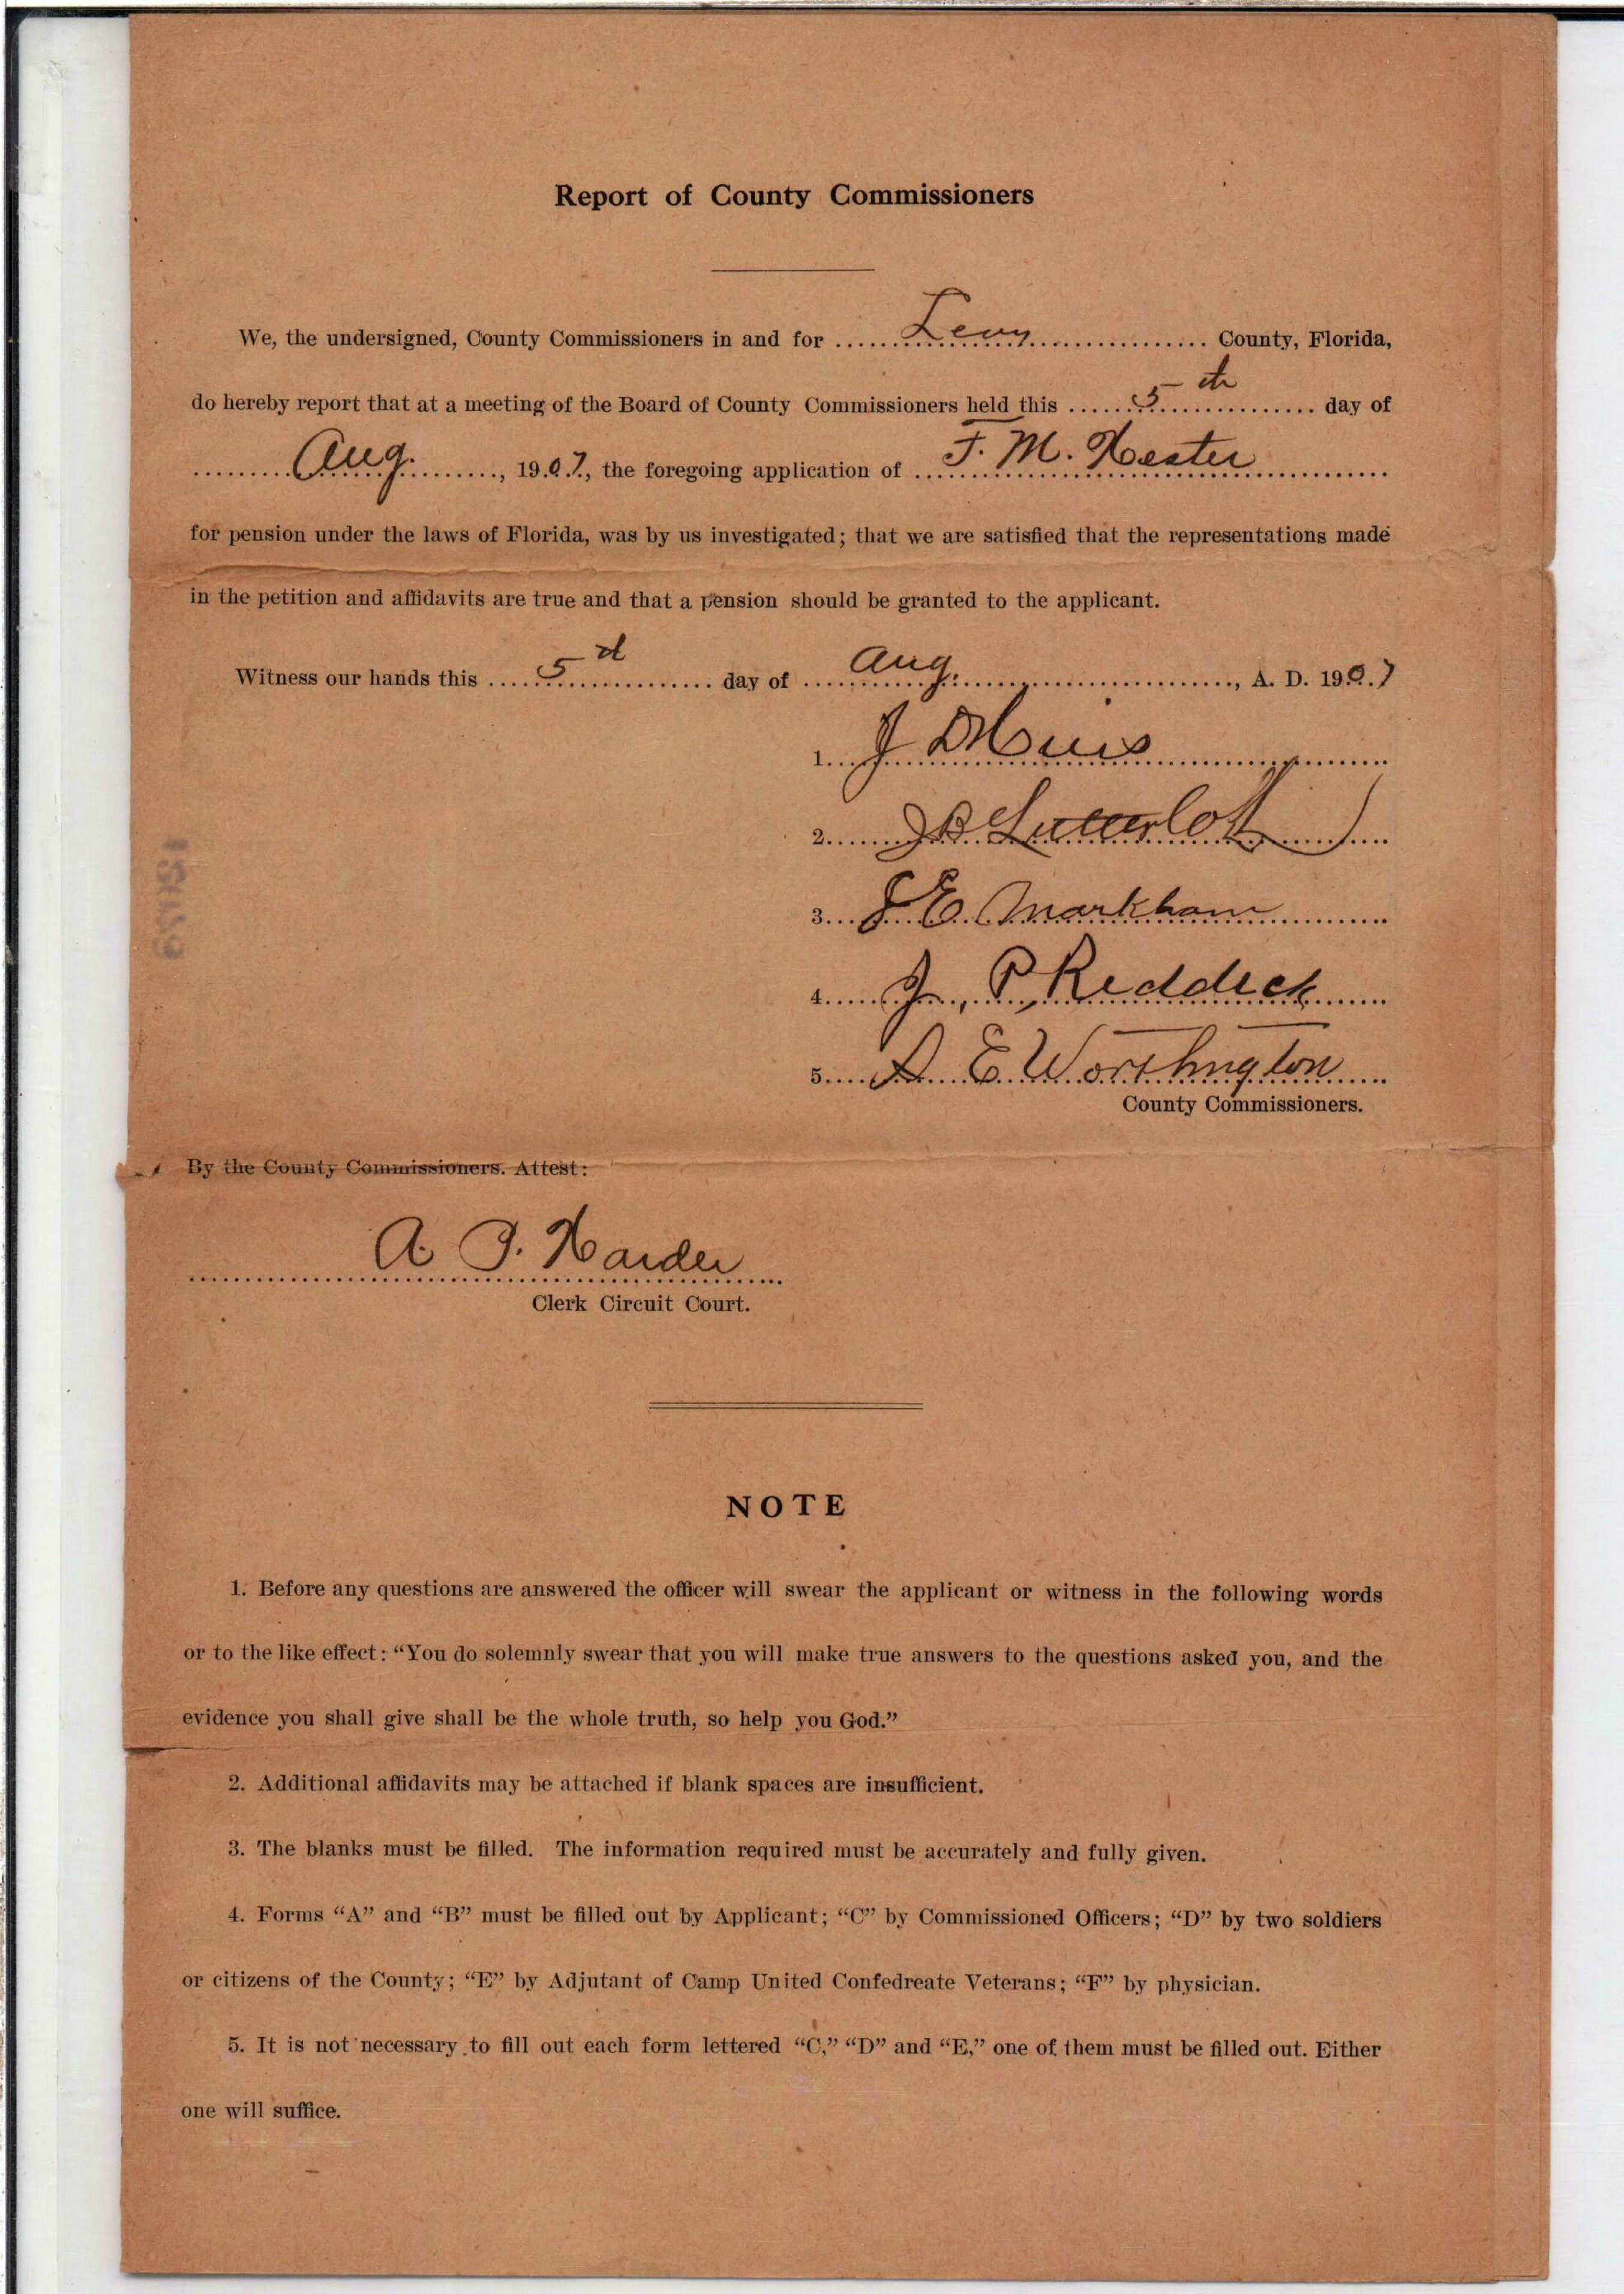 Report of County Commissioners
We, the undersigned, County Commissioners in and for Levy County, Florida,
do hereby report that at a meeting of the Board of County Commissioners held this 5th day of
Aug., 1907, the foregoing application of F. M. Hester
for pension under the laws of Florida, was by us investigated; that we are satisfied that the representations made
in the petition and affidavits are true and that a pension should be granted to the applicant.
Witness our hands this 5 day of Aug., A. D. 1907
1. J
2. J B Lutterloh
3. J E. Markham
4. J. P Reddick
5. E. Worthington
County Commissioners.
By the County Commissioners. Attest:
A.
Clerk Circuit Court.
NOTE
1. Before any questions are answered the officer will swear the applicant or witness in the following words
or to the like effect: “You do solemnly swear that you will make true answers to the questions asked you, and the
evidence you shall give shall be the whole truth, so help you God.”
2. Additional affidavits may be attached if blank spaces are insufficient.
3. The blanks must be filled. The information required must be accurately and fully given.
4. Forms “A” and “B” must be filled out by Applicant; “C” by Commissioned Officers; “D” by two soldiers
or citizens of the County; “E” by Adjutant of Camp United Confedreate Veterans; “F” by physician.
5. It is not necessary to fill out each form lettered “C,” “D” and “E,” one of them must be filled out. Either
one will suffice.